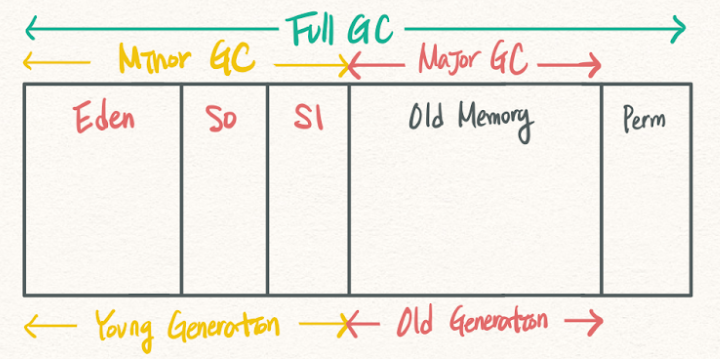 Full GC
Minor GC Major GC
Eden S0 S1 Old Memory Perm
Young Generation Old Generation